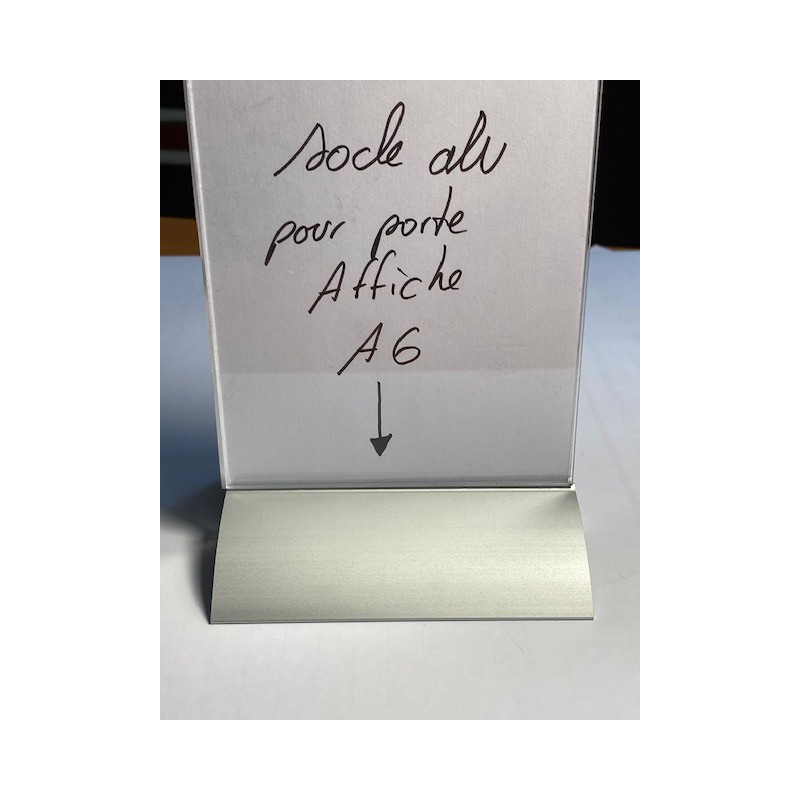 socle alu
pour porte
Affiche
A6